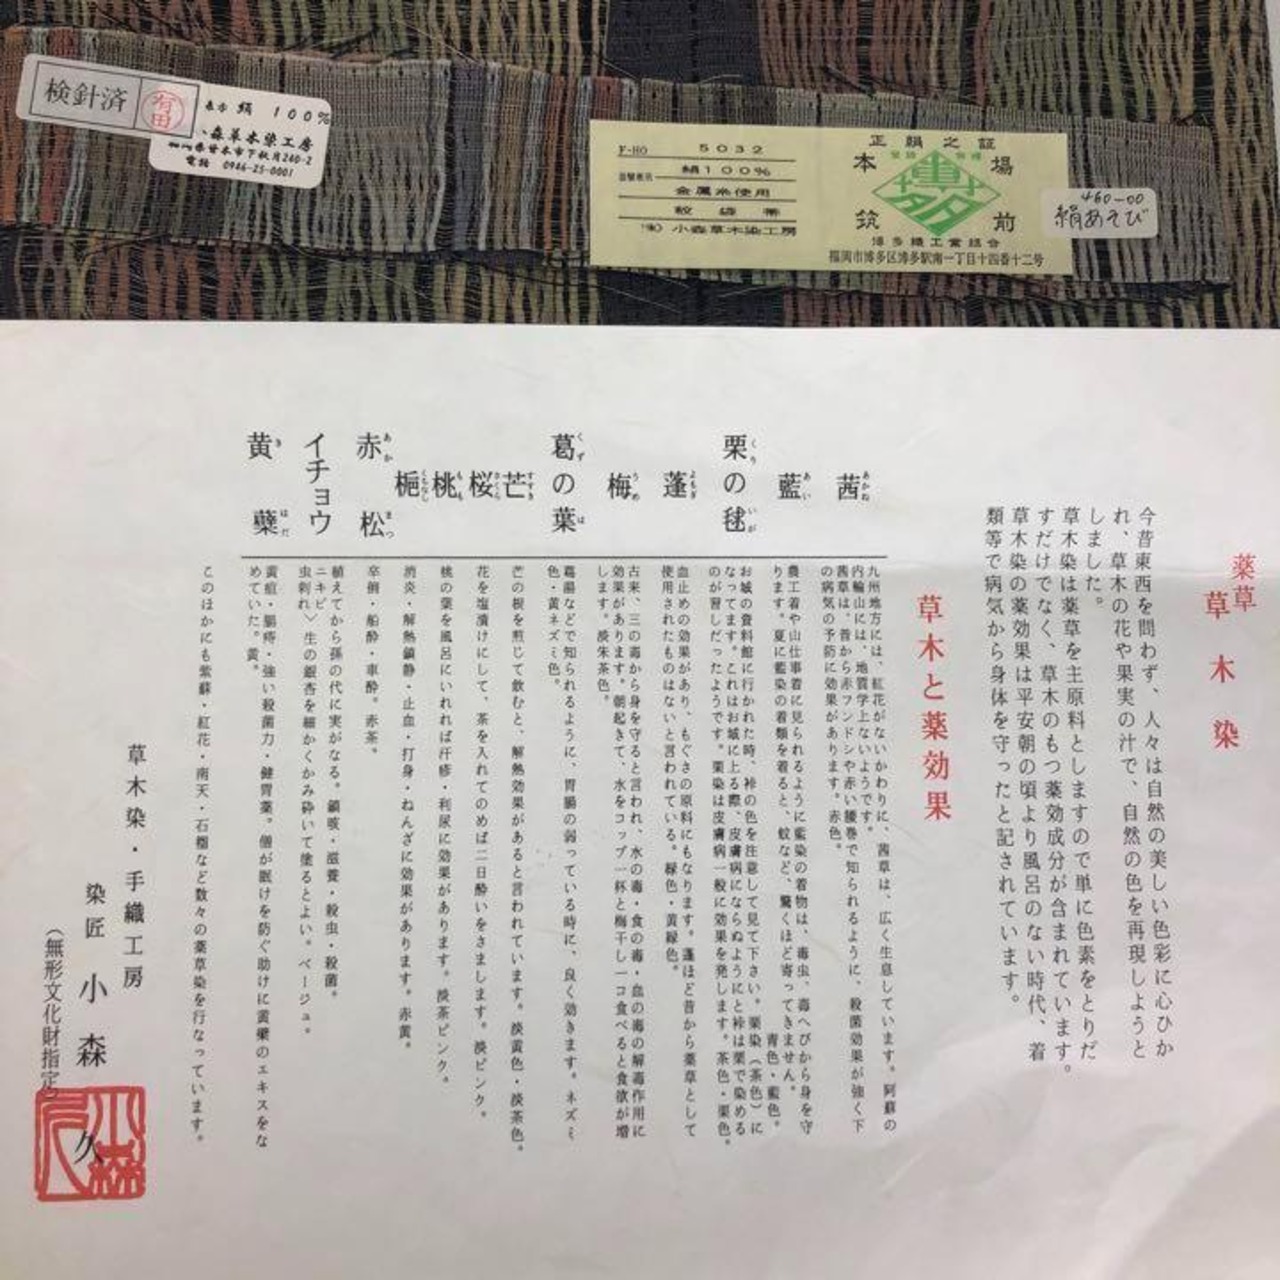 検針済
有田
表示 絹 100%
小森草木染工房
福岡県甘木市下秋月260-2
電話 0946-25-0001
F-HO 5032
絹100%
金属糸使用
紋袋帯
小森草木染工房
正絹之証
本場
筑前
博多織工業組合
福岡市博多区博多駅南一丁目十四番十二号
460-00
絹あそび
薬草
草木染
今昔東西を問わず、人々は自然の美しい色彩に心ひか
れ、草木の花や果実の汁で、自然の色を再現しようと
しました。
草木染は薬草を主原料としますので単に色素をとりだ
すだけでなく、草木のもつ薬効成分が含まれています。
草木染の薬効果は平安朝の頃より風呂のない時代、着
類等で病気から身体を守ったと記されています。
草木と薬効果
茜 あかね
九州地方には、紅花がないかわりに、茜草は、広く生息しています。阿蘇の
内輪山には、地質学上ないようです。
茜草は、昔から赤フンドシや赤い腰巻で知られるように、殺菌効果が強く下
の病気の予防に効果があります。赤色。
藍 あい
農工着や山仕事着に見られるように藍染の着物は、毒虫、毒へびから身を守
ります。夏に藍染の着類を着ると、蚊など、驚くほど寄ってきません。
青色・藍色。
栗の毬 くり いが
お城の資料館に行かれた時、裃の色を注意して見て下さい。栗染(茶色)に
なってます。これはお城に上る際、皮膚病にならぬようにと裃は栗で染める
のが習しだったようです。栗染は皮膚病一般に効果を発します。茶色・栗色。
蓬 よもぎ
血止めの効果があり、もぐさの原料にもなります。蓬ほど昔から薬草として
使用されたものはないと言われている。緑色・黄緑色。
梅 うめ
古来、三の毒から身を守ると言われ、水の毒・食の毒・血の毒の解毒作用に
効果があります。朝起きて、水をコップ一杯と梅干し一コ食べると食欲が増
します。淡朱茶色。
葛の葉 くず は
葛湯などで知られるように、胃腸の弱っている時に、良く効きます。ネズミ
色・黄ネズミ色。
芒 すすき
芒の根を煎じて飲むと、解熱効果があると言われています。淡黄色・淡茶色。
桜 さくら
花を塩漬けにして、茶を入れてのめば二日酔いをさまします。淡ピンク。
桃 もも
桃の葉を風呂にいれれば汗疹・利尿に効果があります。淡茶ピンク。
梔 くちなし
消炎・解熱鎮静・止血・打身・ねんざに効果があります。赤黄。
赤松 あか まつ
卒倒・船酔・車酔。赤茶。
イチョウ
植えてから孫の代に実がなる。鎮咳・滋養・殺虫・殺菌。
ニキビ
虫刺れ〉生の銀杏を細かくかみ砕いて塗るとよい。ベージュ。
黄蘗 き はだ
黄疸・腸痔・強い殺菌力・健胃薬。僧が眠けを防ぐ助けに黄蘗のエキスをな
めていた。黄。
このほかにも紫蘇・紅花・南天・石榴など数々の薬草染を行なっています。
草木染・手織工房
染匠 小森 久
(無形文化財指定)